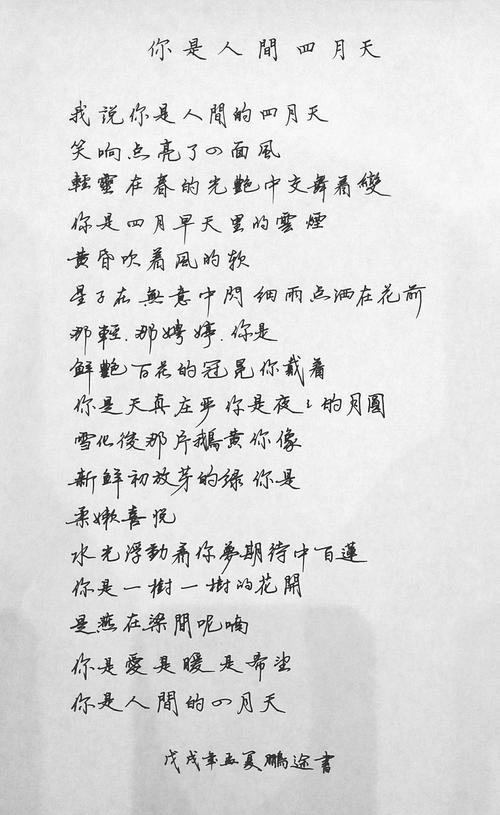 你是人間四月天
我说你是人間的四月天
笑响点亮了四面風
輕靈在春的光艷中交舞着變
你是四月早天里的雲煙
黄昏吹着風的软
星子在無意中閃细雨点洒在花前
那輕.那娉婷.你是
鮮艷百花的冠冕你戴着
你是天真庄严你是夜々的月圓
雪化後那片鵝黄你像
新鮮初放芽的绿你是
柔嫩喜悦
水光浮動着你夢期待中百蓮
你是一樹一樹的花開
是燕在梁間呢喃
你是愛是暖是希望
你是人間的四月天
戊戌年孟夏鵬途書